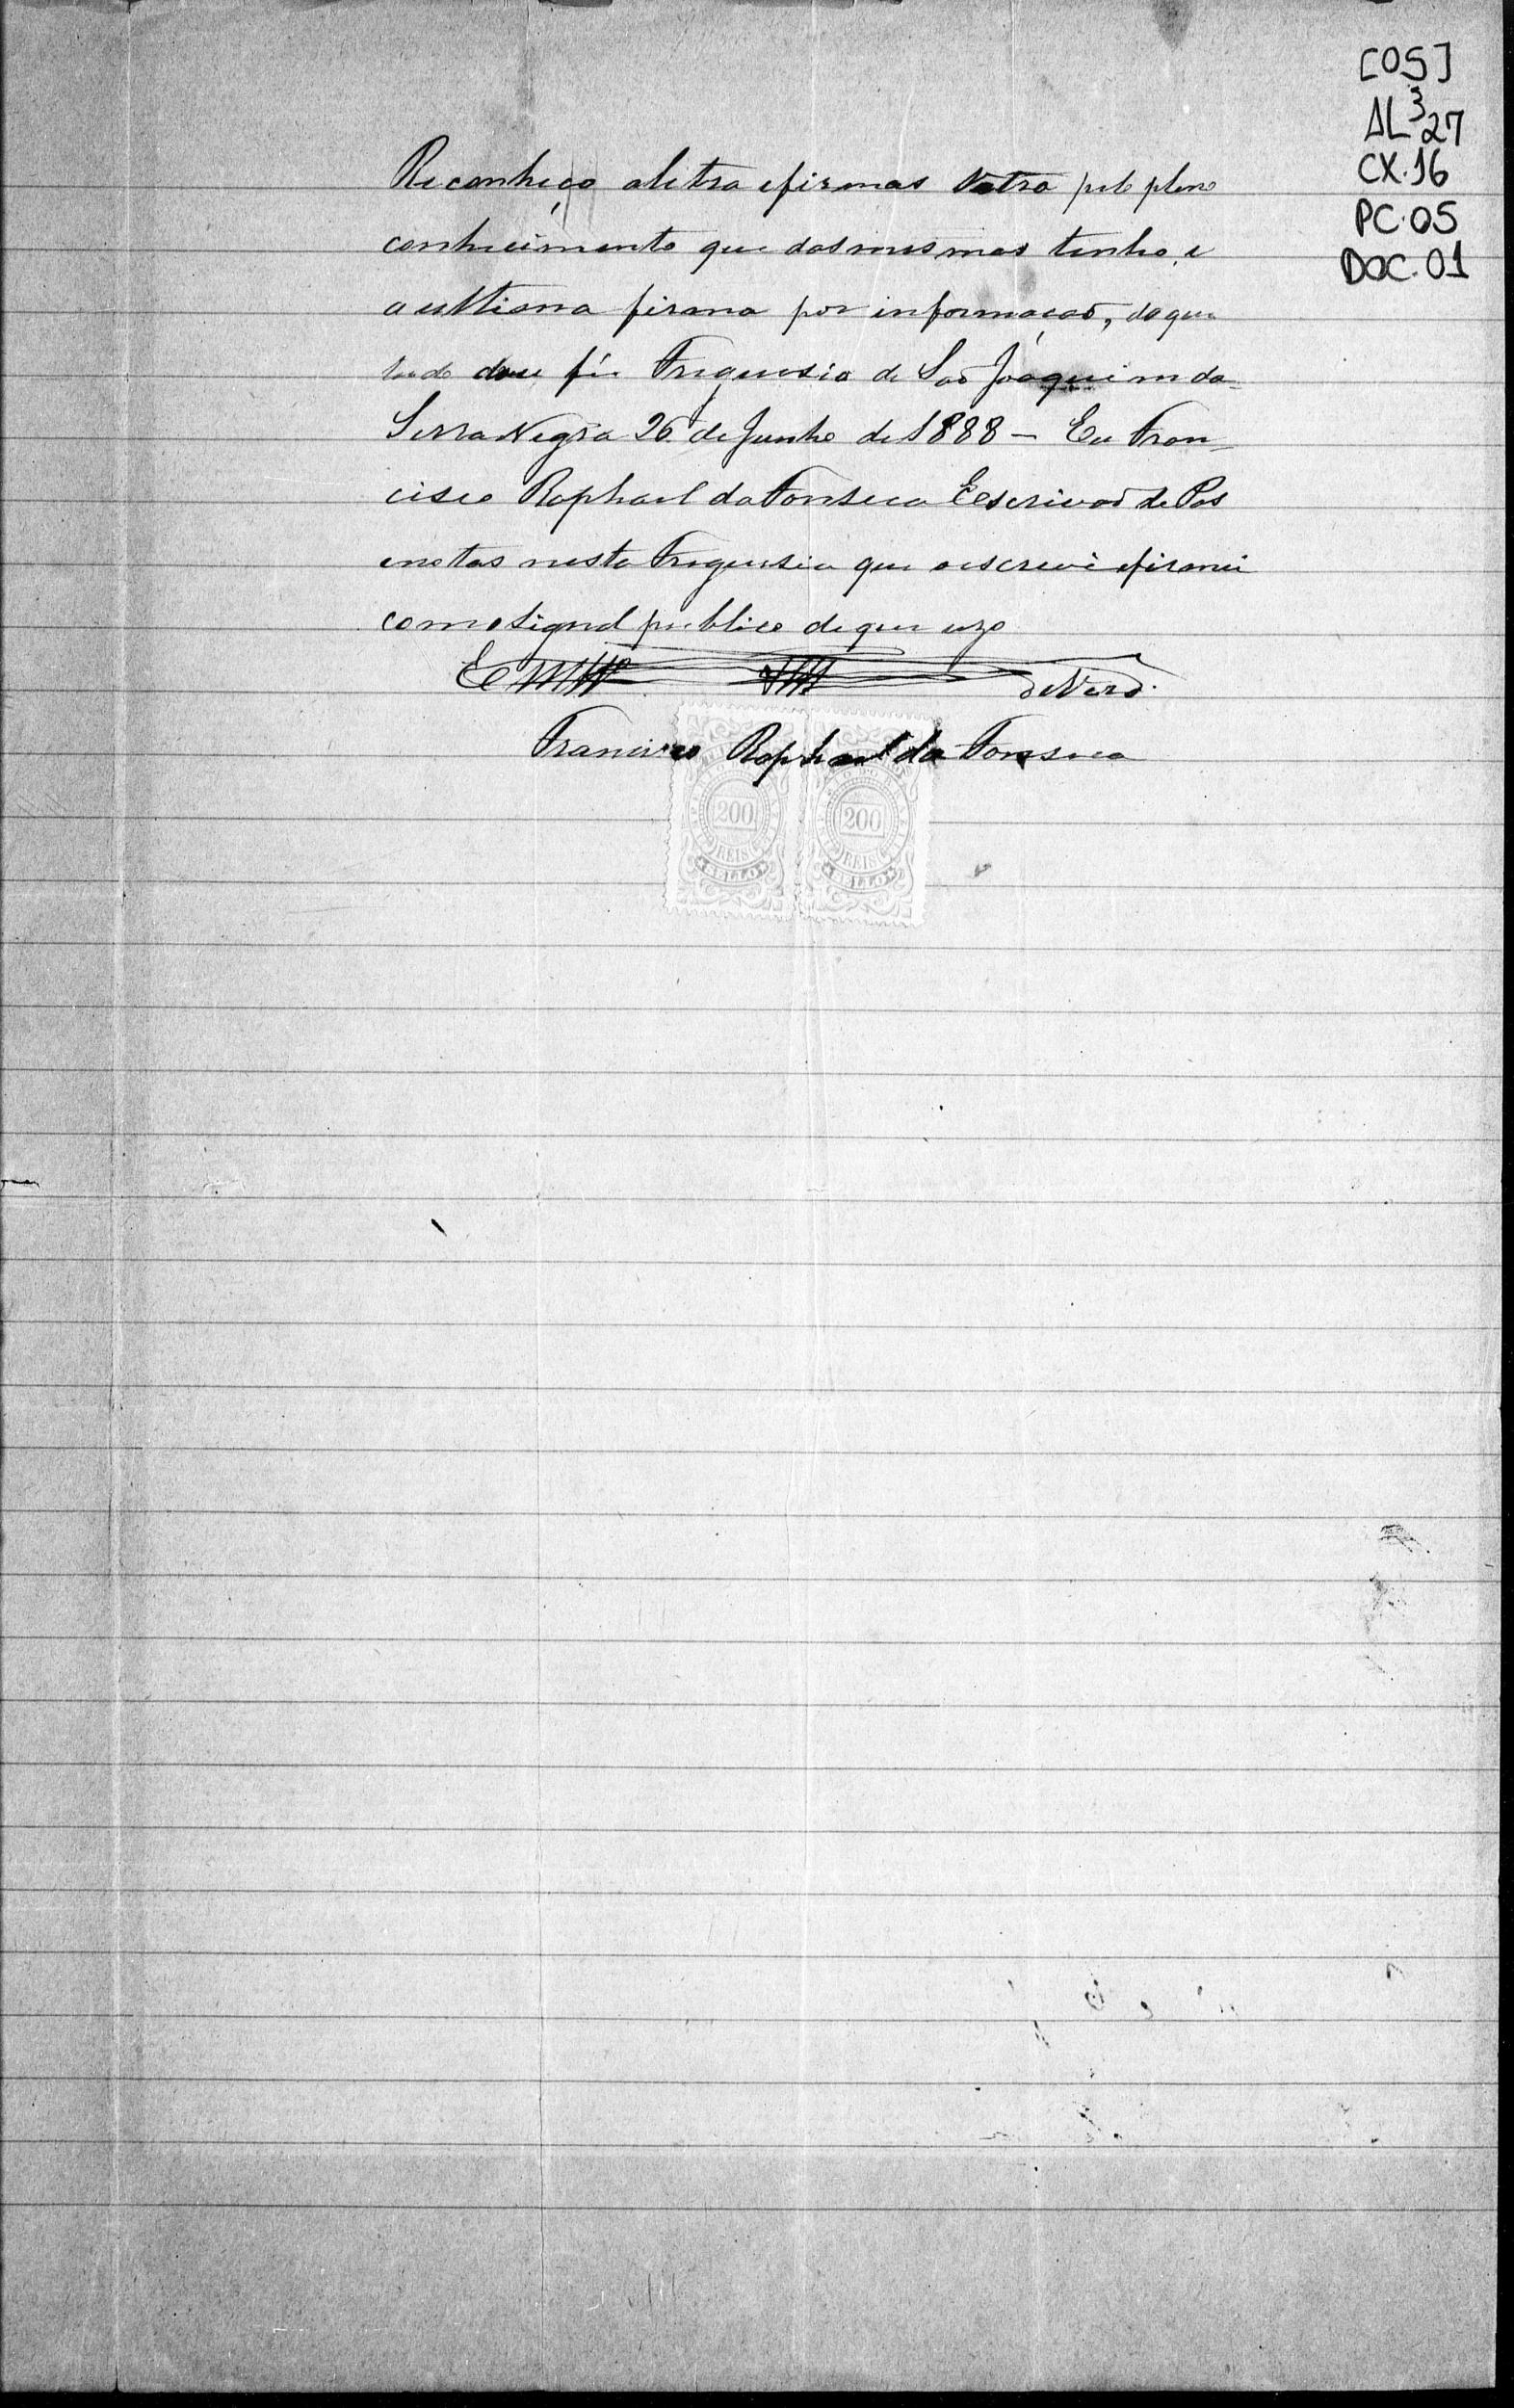 [05]
AL³27
CX.16
PC.05
DOC.01
Reconheço aletra efirmas retro pelo pleno
conhecimento que dasmesmas tenho, e
aulttima firma por informaçaõ, doque
tudo dou fé. Freguesia de Saõ Joaquim da
Serra Negra 26 de Junho de 1888 – Eu Fran-
cisco Raphael da Fonseca Escrivaõ de Pas
enotas nesta Freguesia que oescrevi efirmei
como signal publico deque uzo
Em
de Verd.
Francisco Raphael da Fonseca
200
REIS
SELLO
200
REIS
SELLO